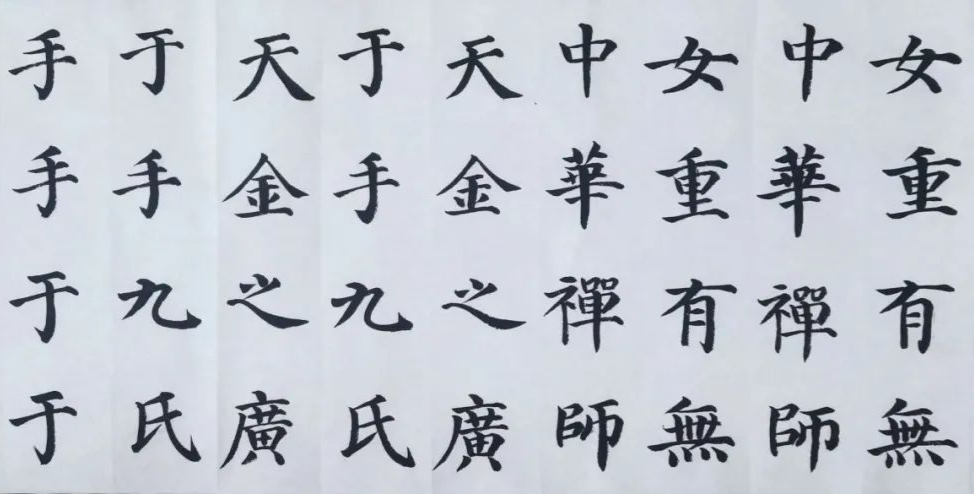 女重有無
中華禪師
女重有無
中華禪師
天金之廣
于手九氏
天金之廣
于手九氏
手手于于